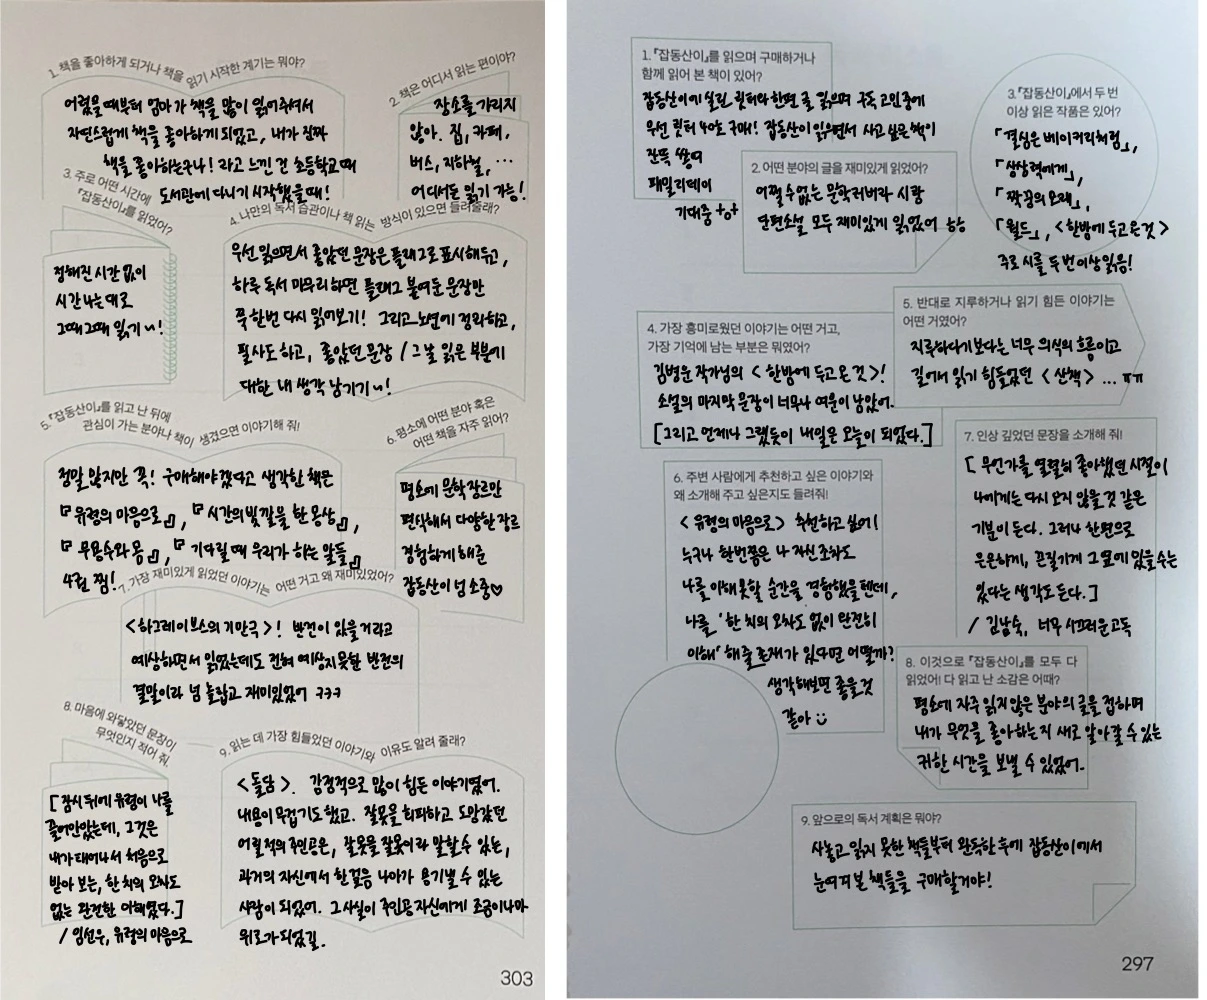 1. 책을 좋아하게 되거나 책을 읽기 시작한 계기는 뭐야?
어렸을 때부터 엄마가 책을 많이 읽어주셔서
자연스럽게 책을 좋아하게 되었고, 내가 진짜
책을 좋아하는구나! 라고 느낀 건 초등학교 때
도서관에 다니기 시작했을 때!
2. 책은 어디서 읽는 편이야?
장소를 가리지
않아. 집, 카페,
버스, 지하철, ...
어디서든 읽기 가능!
3. 주로 어떤 시간에
『잡동산이』를 읽었어?
정해진 시간 없이
시간 나는 대로
그때그때 읽기~!
4. 나만의 독서 습관이나 책 읽는 방식이 있으면 들려줄래?
우선 읽으면서 좋았던 문장은 플래그로 표시해두고,
하루 독서 마무리하면 플래그 붙여둔 문장만
쭉 한번 다시 읽어보기! 그리고 노션에 정리하고,
필사도 하고, 좋았던 문장 / 그날 읽은 부분에
대한 내 생각 남기기~!
5. 『잡동산이』를 읽고 난 뒤에
관심이 가는 분야나 책이 생겼으면 이야기해 줘!
정말 많지만 꼭! 구매해야겠다고 생각한 책은
『유령의 마음으로』, 『시간의 빛깔을 한 몽상』,
『무용수와 몸』, 『기다릴 때 우리가 하는 말들』
4권 찜!
6. 평소에 어떤 분야 혹은
어떤 책을 자주 읽어?
평소에 문학 장르만
편식해서 다양한 장르
경험하게 해준
잡동산이 넘 소중♡
7. 가장 재미있게 읽었던 이야기는 어떤 거고 왜 재미있었어?
<하그레이브스의 기만극>! 반전이 있을 거라고
예상하면서 읽었는데도 전혀 예상치 못한 반전의
결말이라 넘 놀랍고 재미있었어 ㅋㅋㅋ
8. 마음에 와닿았던 문장이
무엇인지 적어 줘.
[잠시 뒤에 유령이 나를
끌어안았는데, 그것은
내가 태어나서 처음으로
받아 보는, 한 치의 오차도
없는 완전한 이해였다.]
/ 임선우, 유령의 마음으로
9. 읽는 데 가장 힘들었던 이야기와 이유도 알려 줄래?
<돌담>. 감정적으로 많이 힘든 이야기였어.
내용이 무겁기도 했고. 잘못을 회피하고 도망갔던
어릴 적의 주인공은, 잘못을 잘못이라 말할 수 있는,
과거의 자신에서 한걸음 나아가 용기낼 수 있는
사람이 되었어. 그 사실이 주인공 자신에게 조금이나마
위로가 되었길.
303
1. 『잡동산이』를 읽으며 구매하거나
함께 읽어 본 책이 있어?
잡동산이에 실린 릿터와 한편 글 읽으며 구독 고민 중에
우선 릿터 40호 구매! 잡동산이 읽으면서 사고 싶은 책이
잔뜩 쌓여
패밀리데이
기대중
2. 어떤 분야의 글을 재미있게 읽었어?
어쩔 수 없는 문학러버라 시랑
단편소설 모두 재미있게 읽었어 ㅎㅎ
3. 『잡동산이』에서 두 번
이상 읽은 작품은 있어?
「결심은 베이커리처럼」,
「상상력에게」,
「짝꿍의 모래」,
「월드」, <한밤에 두고 온 것>
주로 시를 두 번 이상 읽음!
4. 가장 흥미로웠던 이야기는 어떤 거고,
가장 기억에 남는 부분은 뭐였어?
김병운 작가님의 <한밤에 두고 온 것>!
소설의 마지막 문장이 너무나 여운이 남았어.
[그리고 언제나 그랬듯이 내일은 오늘이 되었다.]
5. 반대로 지루하거나 읽기 힘든 이야기는
어떤 거였어?
지루하다기보다는 너무 의식의 흐름이고
길어서 읽기 힘들었던 <산책> ... ㅠㅠ
6. 주변 사람에게 추천하고 싶은 이야기와
왜 소개해 주고 싶은지도 들려줘!
<유령의 마음으로> 추천하고 싶어!
누구나 한번쯤은 나 자신조차도
나를 이해 못할 순간을 경험했을 텐데,
나를 '한 치의 오차도 없이 완전히
이해' 해줄 존재가 있다면 어떨까?
생각해보면 좋을 것
같아
7. 인상 깊었던 문장을 소개해 줘!
[무언가를 열렬히 좋아했던 시절이
나에게는 다시 오지 않을 것 같은
기분이 든다. 그러나 한편으로
은은하게, 끈질기게 그 옆에 있을 수는
있다는 생각도 든다.]
/ 김남숙, 너무 시끄러운 고독
8. 이것으로 『잡동산이』를 모두 다
읽었어! 다 읽고 난 소감은 어때?
평소에 자주 읽지 않은 분야의 글을 접하며
내가 무엇을 좋아하는지 새로 알아갈 수 있는
귀한 시간을 보낼 수 있었어.
9. 앞으로의 독서 계획은 뭐야?
사놓고 읽지 못한 책들부터 완독한 후에 잡동산이에서
눈여겨 본 책들을 구매할거야!
297